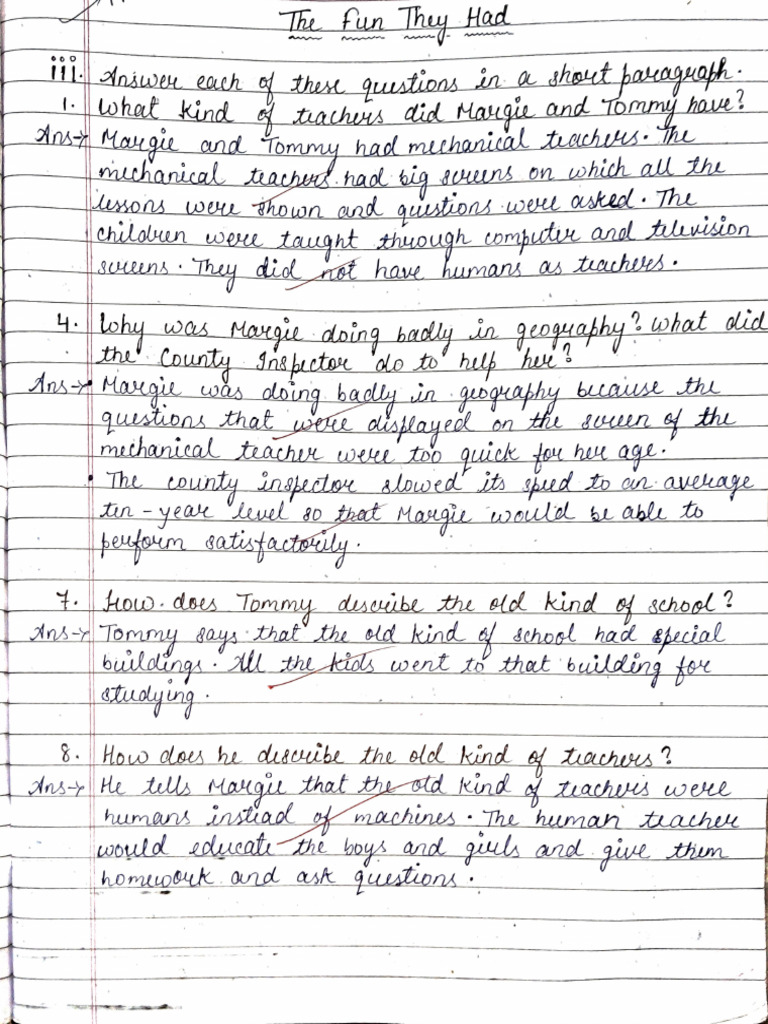 The Fun They Had
iii. Answer each of these questions in a short paragraph.
1. What kind of teachers did Margie and Tommy have?
Ans→ Margie and Tommy had mechanical teachers. The
mechanical teachers had big screens on which all the
lessons were shown and questions were asked. The
children were taught through computer and television
screens. They did not have humans as teachers.
4. Why was Margie doing badly in geography? What did
the County Inspector do to help her?
Ans→ • Margie was doing badly in geography because the
questions that were displayed on the screen of the
mechanical teacher were too quick for her age.
• The county inspector slowed its speed to an average
ten-year level so that Margie would be able to
perform satisfactorily.
7. How does Tommy describe the old kind of school?
Ans→ Tommy says that the old kind of school had special
buildings. All the kids went to that building for
studying.
8. How does he describe the old kind of teachers?
Ans→ He tells Margie that the old kind of teachers were
humans instead of machines. The human teacher
would educate the boys and girls and give them
homework and ask questions.